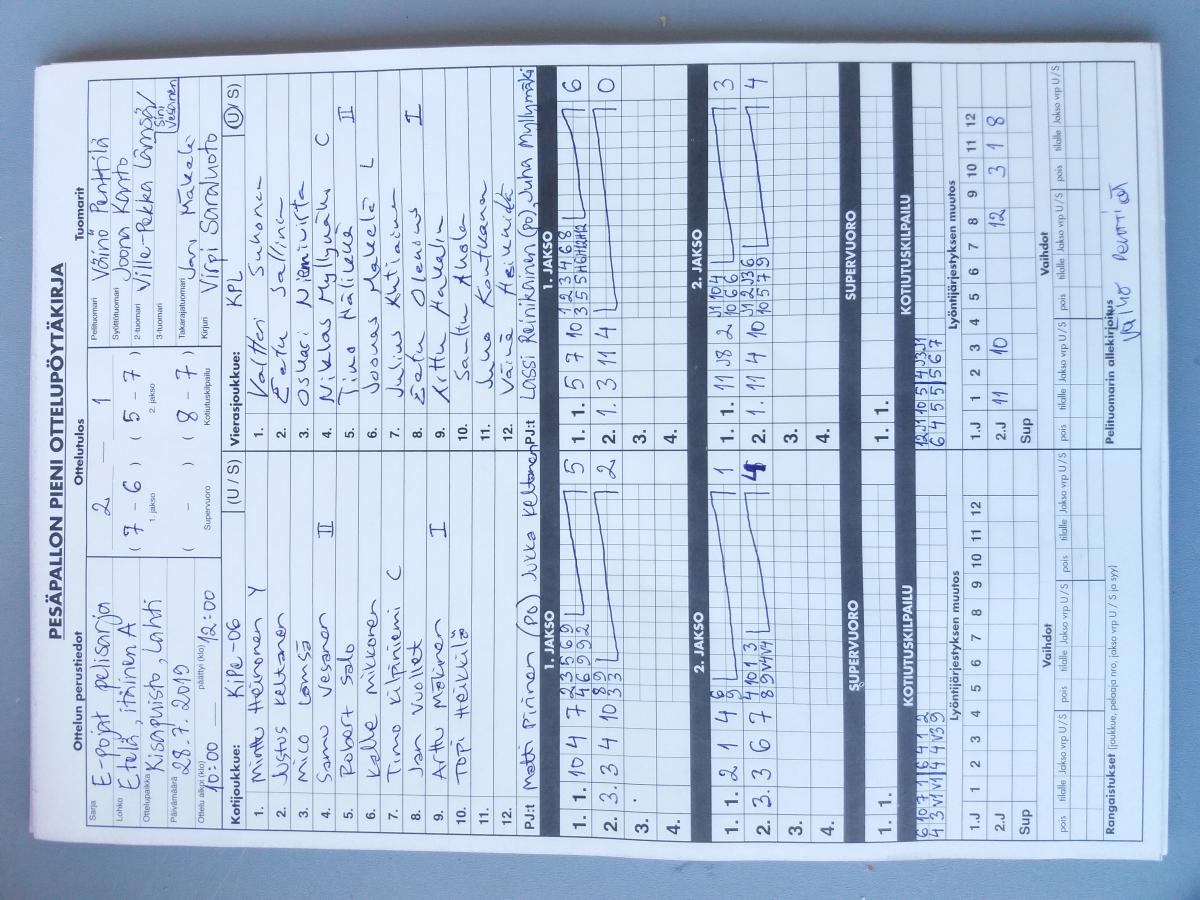 PESÄPALLON PIENI OTTELUPÖYTÄKIRJA
Ottelun perustiedot
Sarja E-pojat pelisarja
Lohko Etelä, itäinen A
Ottelupaikka Kisapuisto, Lahti
Päivämäärä 28.7.2019
Ottelu alkoi (klo) 10:00 päättyi (klo) 12:00
Ottelutulos
2 — 1
( 7 - 6 ) ( 5 - 7 )
1. jakso 2. jakso
( - ) ( 8 - 7 )
Supervuoro Kotiutuskilpailu
Tuomarit
Pelituomari Väinö Penttilä
Syöttötuomari Joona Kanto
2-tuomari Ville-Pekka Lämsä/
3-tuomari Sini Vesanen
Takarajatuomari Jani Mäkelä
Kirjuri Virpi Saraluoto
Kotijoukkue: KiPe-06 (U / S)
1. Minttu Heimonen Y
2. Justus Keltanen
3. Mico Lämsä
4. Samu Vesanen II
5. Robert Salo
6. Kalle Mikkonen
7. Timo Kilpiniemi C
8. Jan Vuollet
9. Arttu Mäkinen I
10. Topi Heikkilä
11.
12.
PJ:t Matti Piirinen (PO) Jukka Keltanen
Vierasjoukkue: KPL (U / S)
1. Valtteri Suhonen
2. Eetu Sallinen
3. Oskari Niemivirta
4. Niklas Myllymäki C
5. Timo Hälikkä II
6. Joonas Mäkelä L
7. Julius Kutiainen
8. Eetu Olenius I
9. Arttu Hakalin
10. Santtu Ahola
11. Juho Kontkanen
12. Väinö Heikenheimo
PJ:t Lassi Reinikainen (po), Juha Myllymäki
1. JAKSO
1. 1. 10 4 7 5
2. 3. 3 4 10 2
3.
4.
1. JAKSO
1. 1. 5 7 10 6
2. 1. 3 11 4 0
3.
4.
2. JAKSO
1. 1. 2 1 4 1
2. 3. 3 6 7 4
3.
4.
2. JAKSO
1. 1. 11 J8 2 3
2. 1. 11 4 10 4
3.
4.
SUPERVUORO
1. 1.
SUPERVUORO
1. 1.
KOTIUTUSKILPAILU
6 10 7 1 6 4 1 2
4 3 V1 V1 4 4 V3 9
KOTIUTUSKILPAILU
12 J1 10 5 4 J3 J1
6 4 5 5 5 6 7
Lyöntijärjestyksen muutos
1 2 3 4 5 6 7 8 9 10 11 12
1.J
2.J
Sup
Lyöntijärjestyksen muutos
1 2 3 4 5 6 7 8 9 10 11 12
1.J
2.J 11 10 12 3 1 8
Sup
Vaihdot
pois tilalle Jakso vrp U / S pois tilalle Jakso vrp U / S pois tilalle Jakso vrp U / S
Vaihdot
pois tilalle Jakso vrp U / S pois tilalle Jakso vrp U / S pois tilalle Jakso vrp U / S
Rangaistukset (joukkue, pelaaja nro, jakso vrp U / S ja syy)
Pelituomarin allekirjoitus